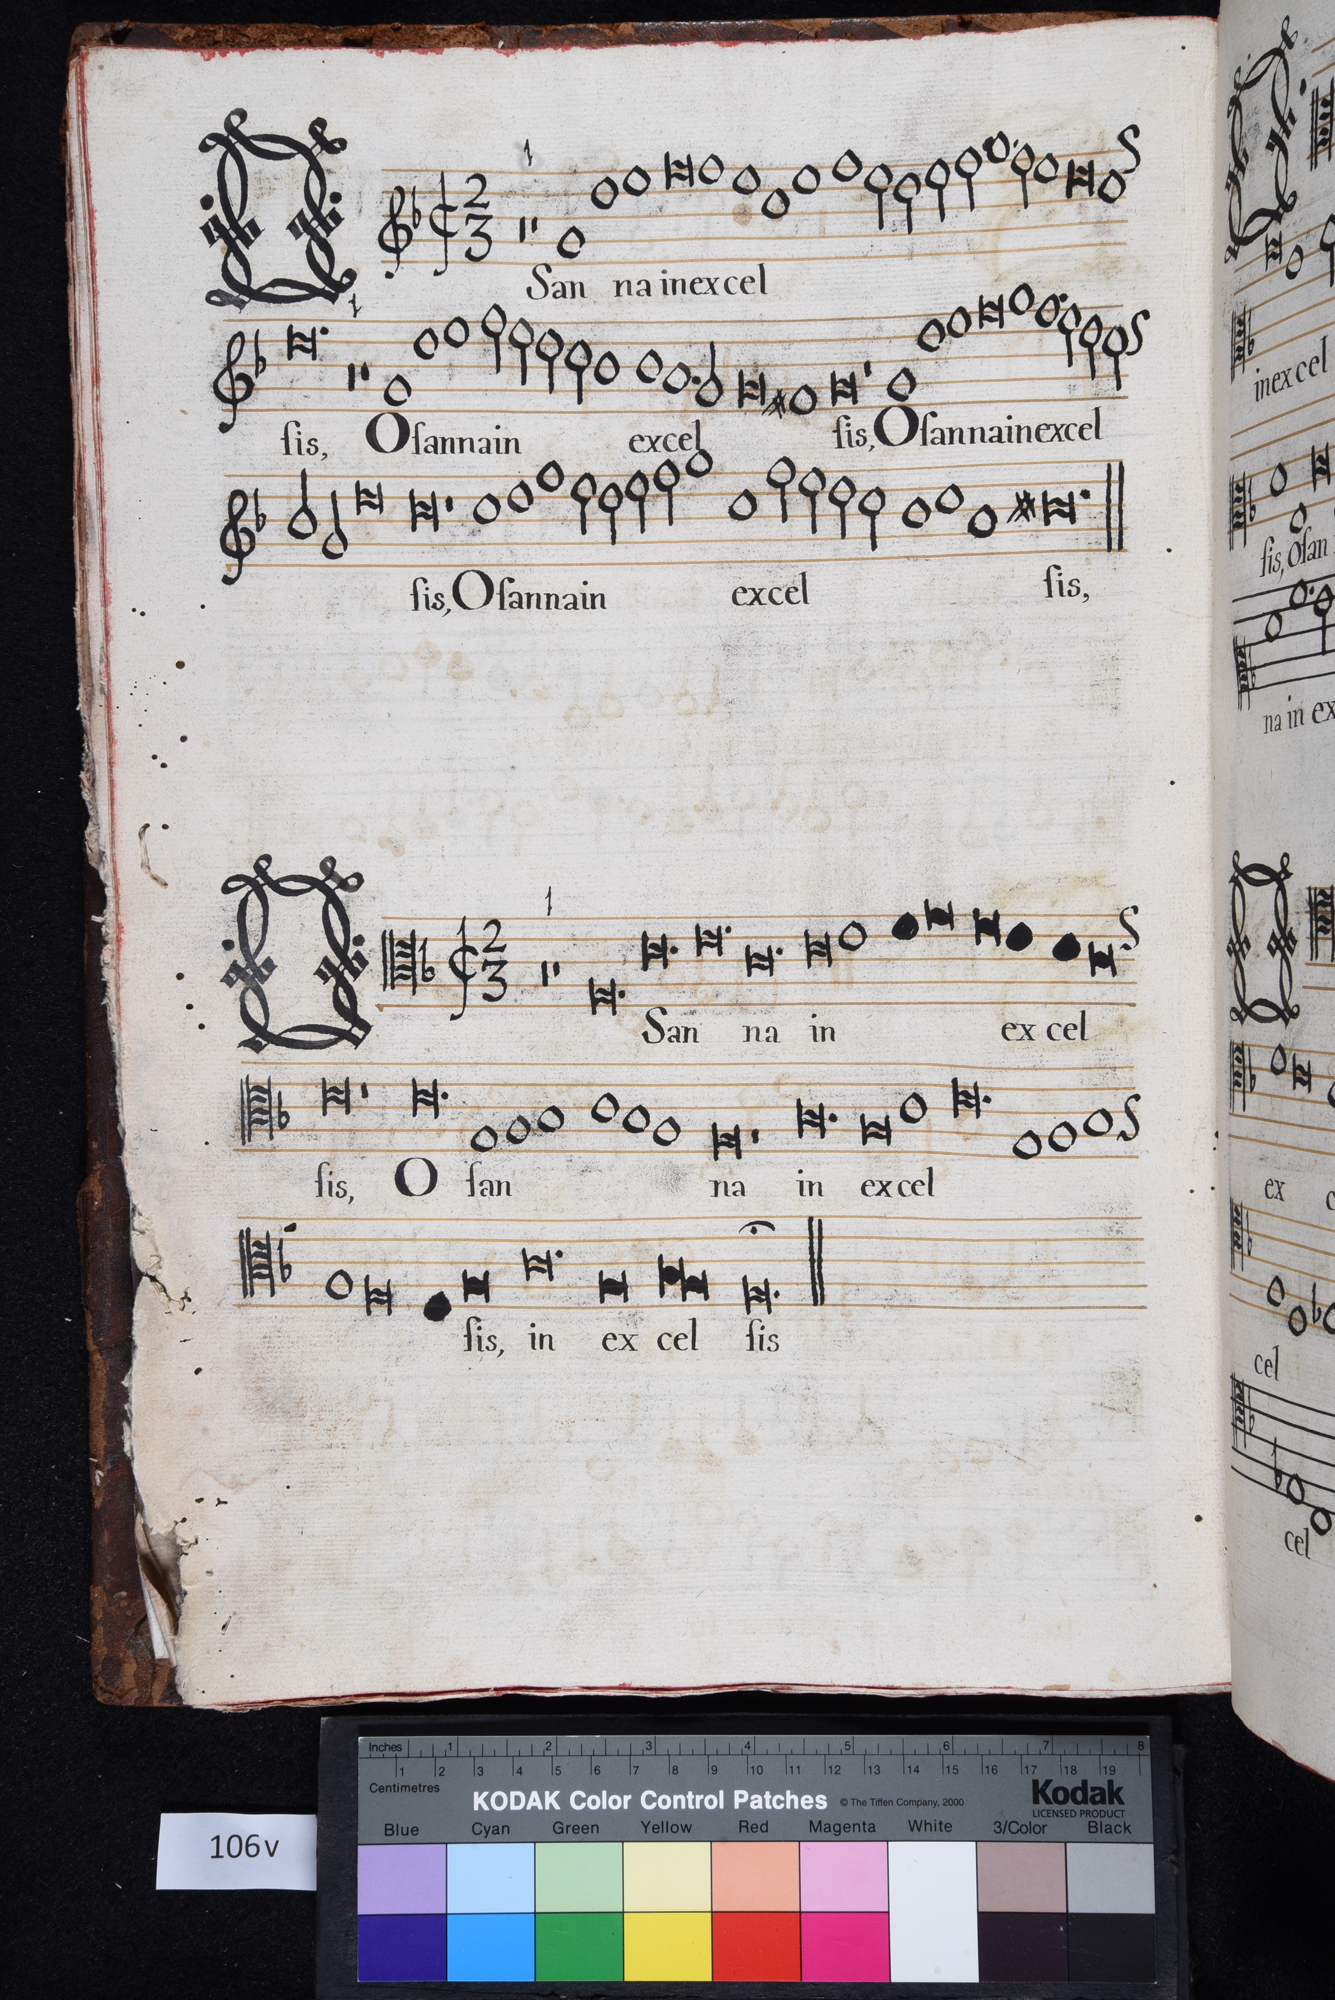 1
O
2
3
San na in excel
1
ſis, Oſannain excel ſis, Oſannainexcel
ſis, Oſannain excel ſis,
1
O
2
3
San na in ex cel
ſis, O ſan na in excel
ſis, in ex cel ſis
inexcel
ſis, Oſan
na in ex
ex
cel
cel
106v
Inches 1 2 3 4 5 6 7 8
1 2 3 4 5 6 7 8 9 10 11 12 13 14 15 16 17 18 19
Centimetres
KODAK Color Control Patches © The Tiffen Company, 2000
Kodak
LICENSED PRODUCT
Blue Cyan Green Yellow Red Magenta White 3/Color Black